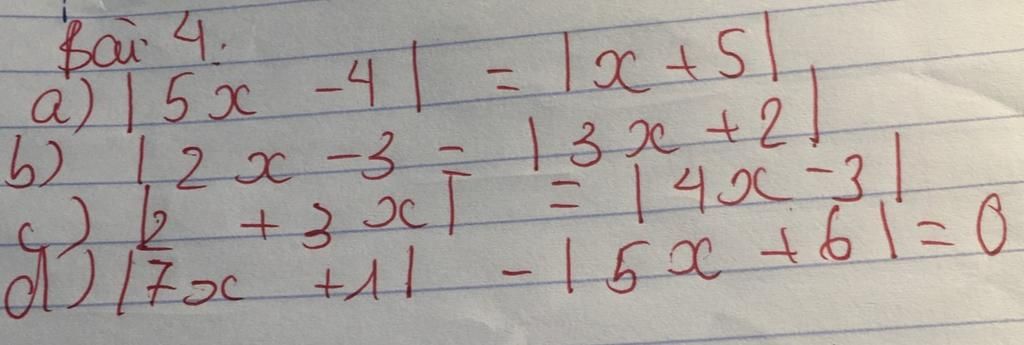 Bài 4.
a) |5x - 4| = |x + 5|
b) |2x - 3 - |3x + 2|
c) |2 + 3x| = |4x - 3|
d) |7x + 1| - |5x + 6| = 0